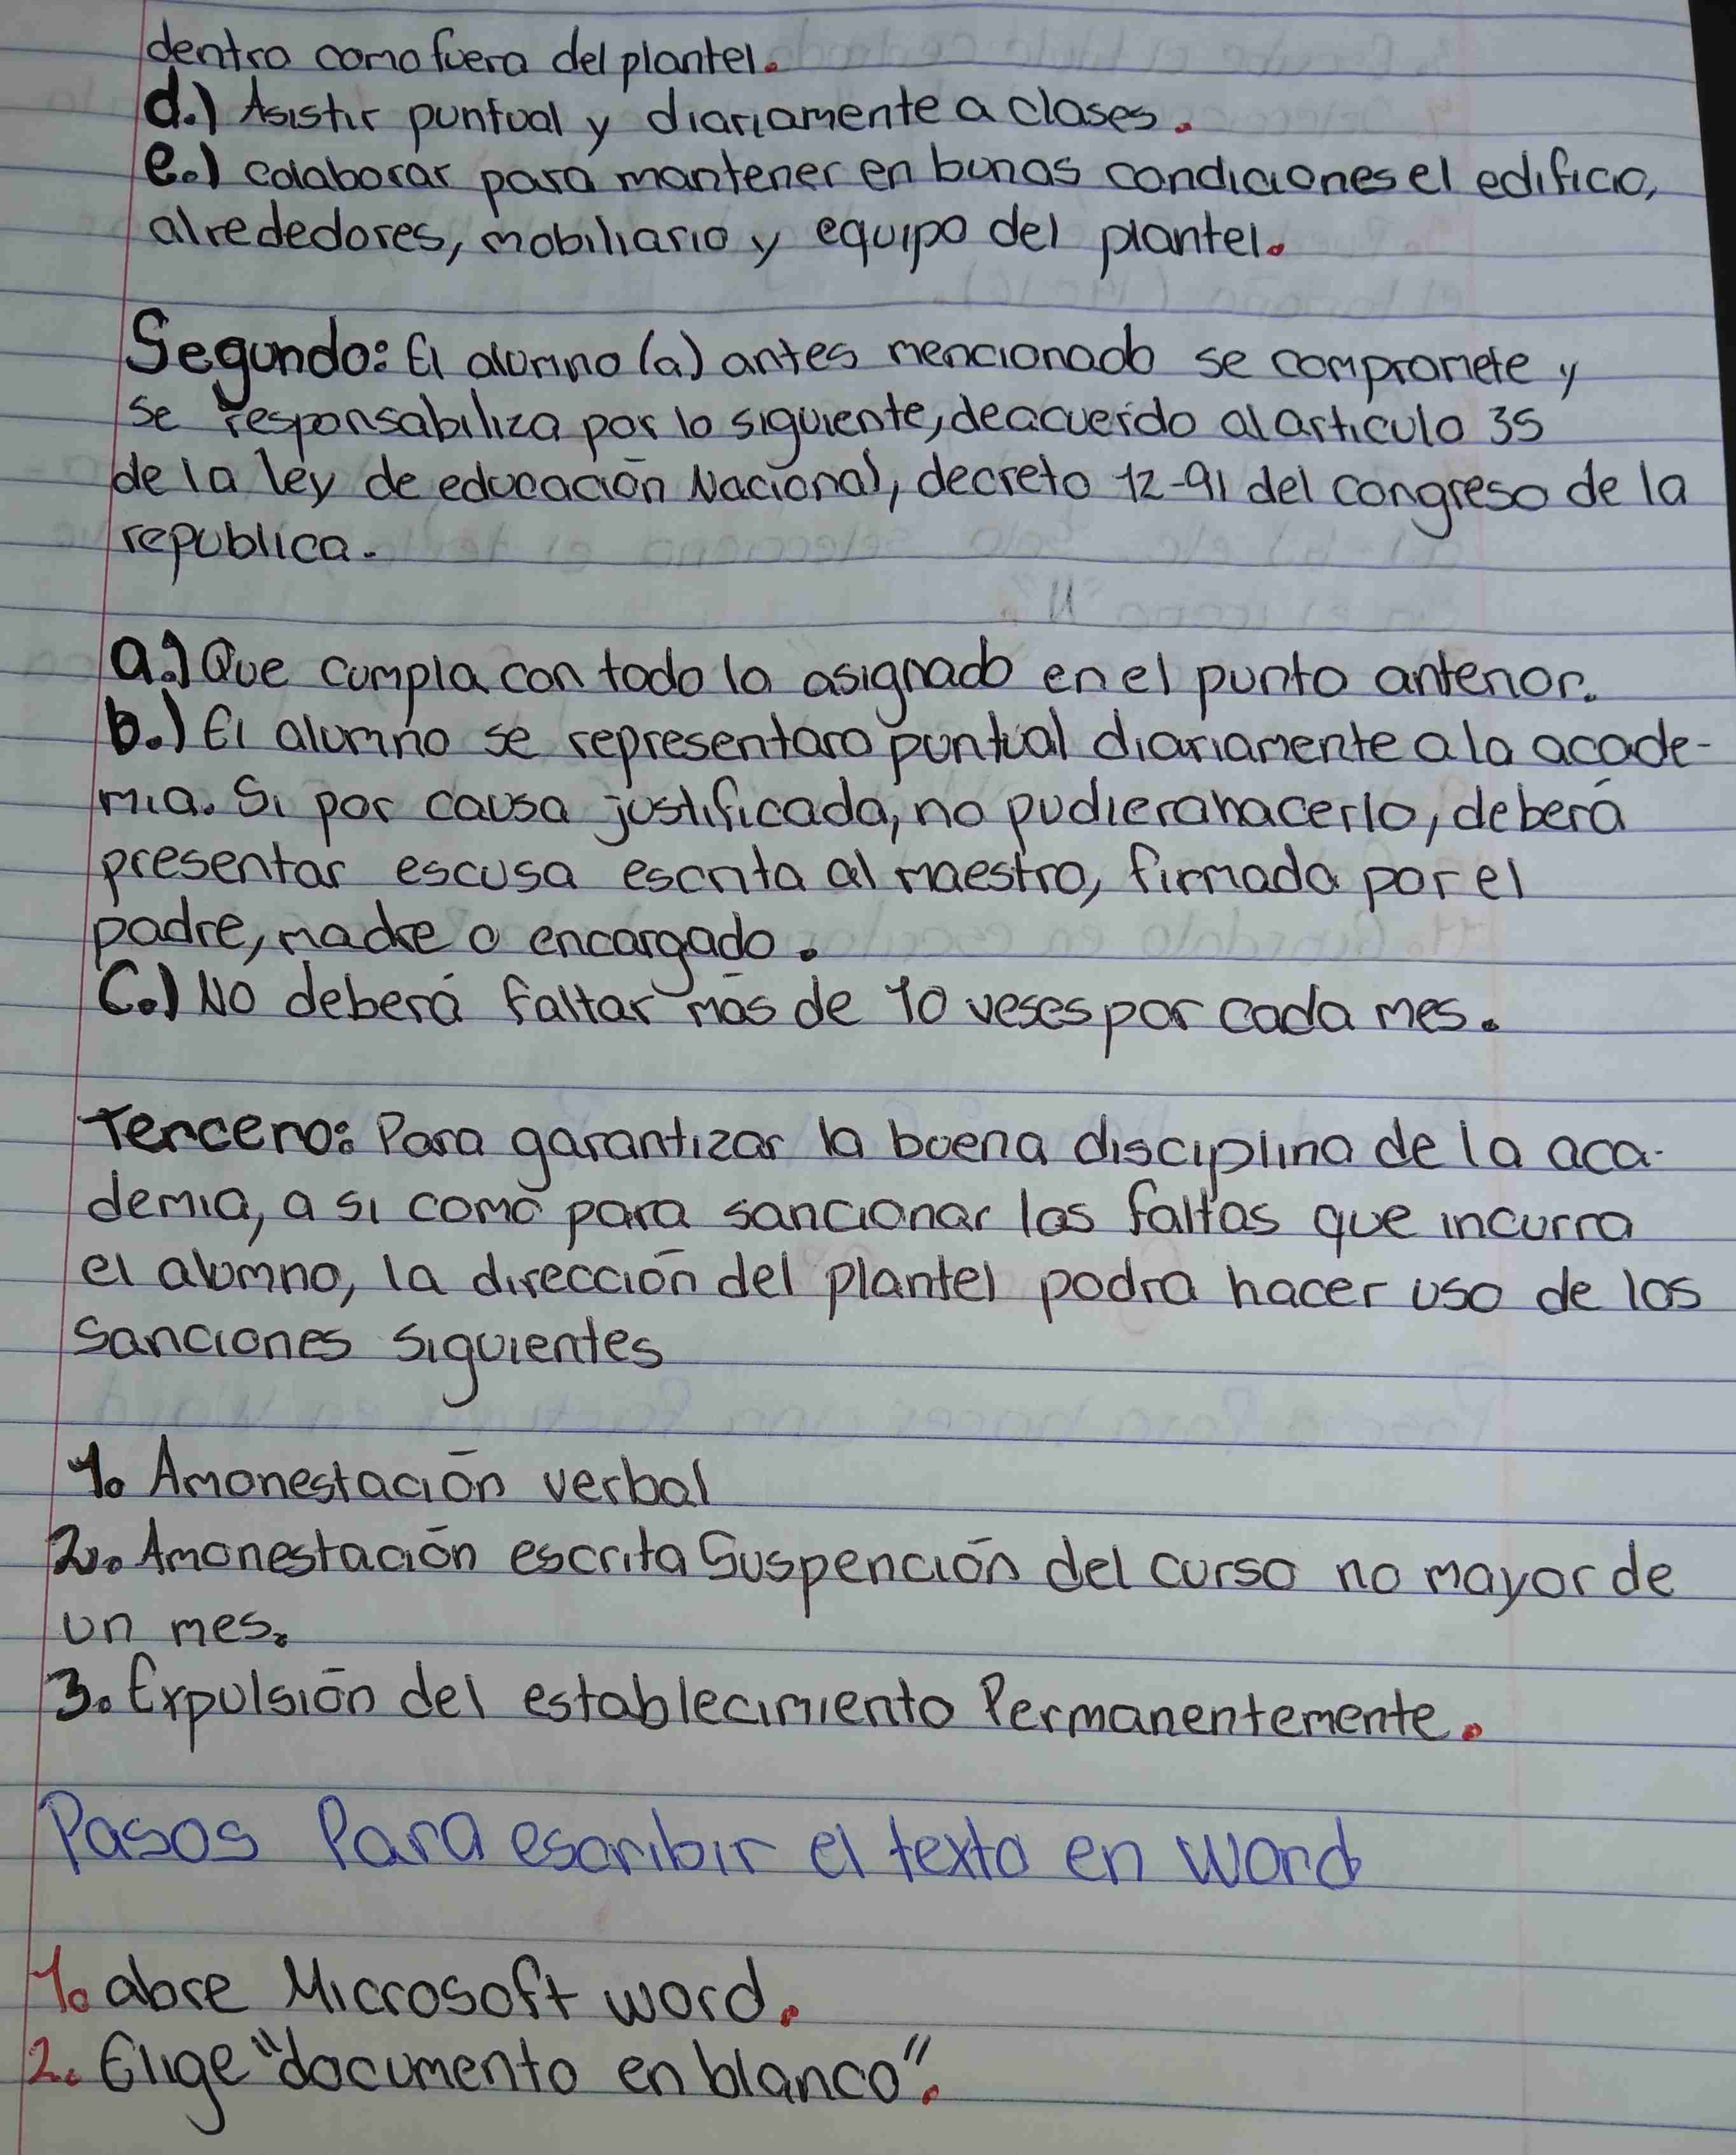 dentro como fuera del plantel.
d.) Asistir puntual y diariamente a clases.
e.) colaborar para mantener en bunas condiciones el edificio,
alrededores, mobiliario y equipo del plantel.
Segundo: El alumno (a) antes mencionado se compromete y
se responsabiliza por lo siguiente, deacuerdo al articulo 35
de la ley de educación Nacional, decreto 12-91 del congreso de la
republica.
a.) Que cumpla con todo lo asignado en el punto anterior.
b.) El alumno se representara puntual diariamente a la acade-
mia. Si por causa justificada, no pudiera hacerlo, deberá
presentar escusa escrita al maestro, firmada por el
padre, madre o encargado.
C.) No deberá faltar más de 10 veses por cada mes.
Tercero: Para garantizar la buena disciplina de la aca-
demia, a si como para sancionar las faltas que incurra
el alumno, la dirección del plantel podra hacer uso de los
sanciones siguientes
1. Amonestación verbal
2. Amonestación escrita Suspención del curso no mayor de
un mes.
3. Expulsión del establecimiento Permanentemente.
Pasos Para escribir el texto en word
1. abre Microsoft word.
2. Elige "documento en blanco".